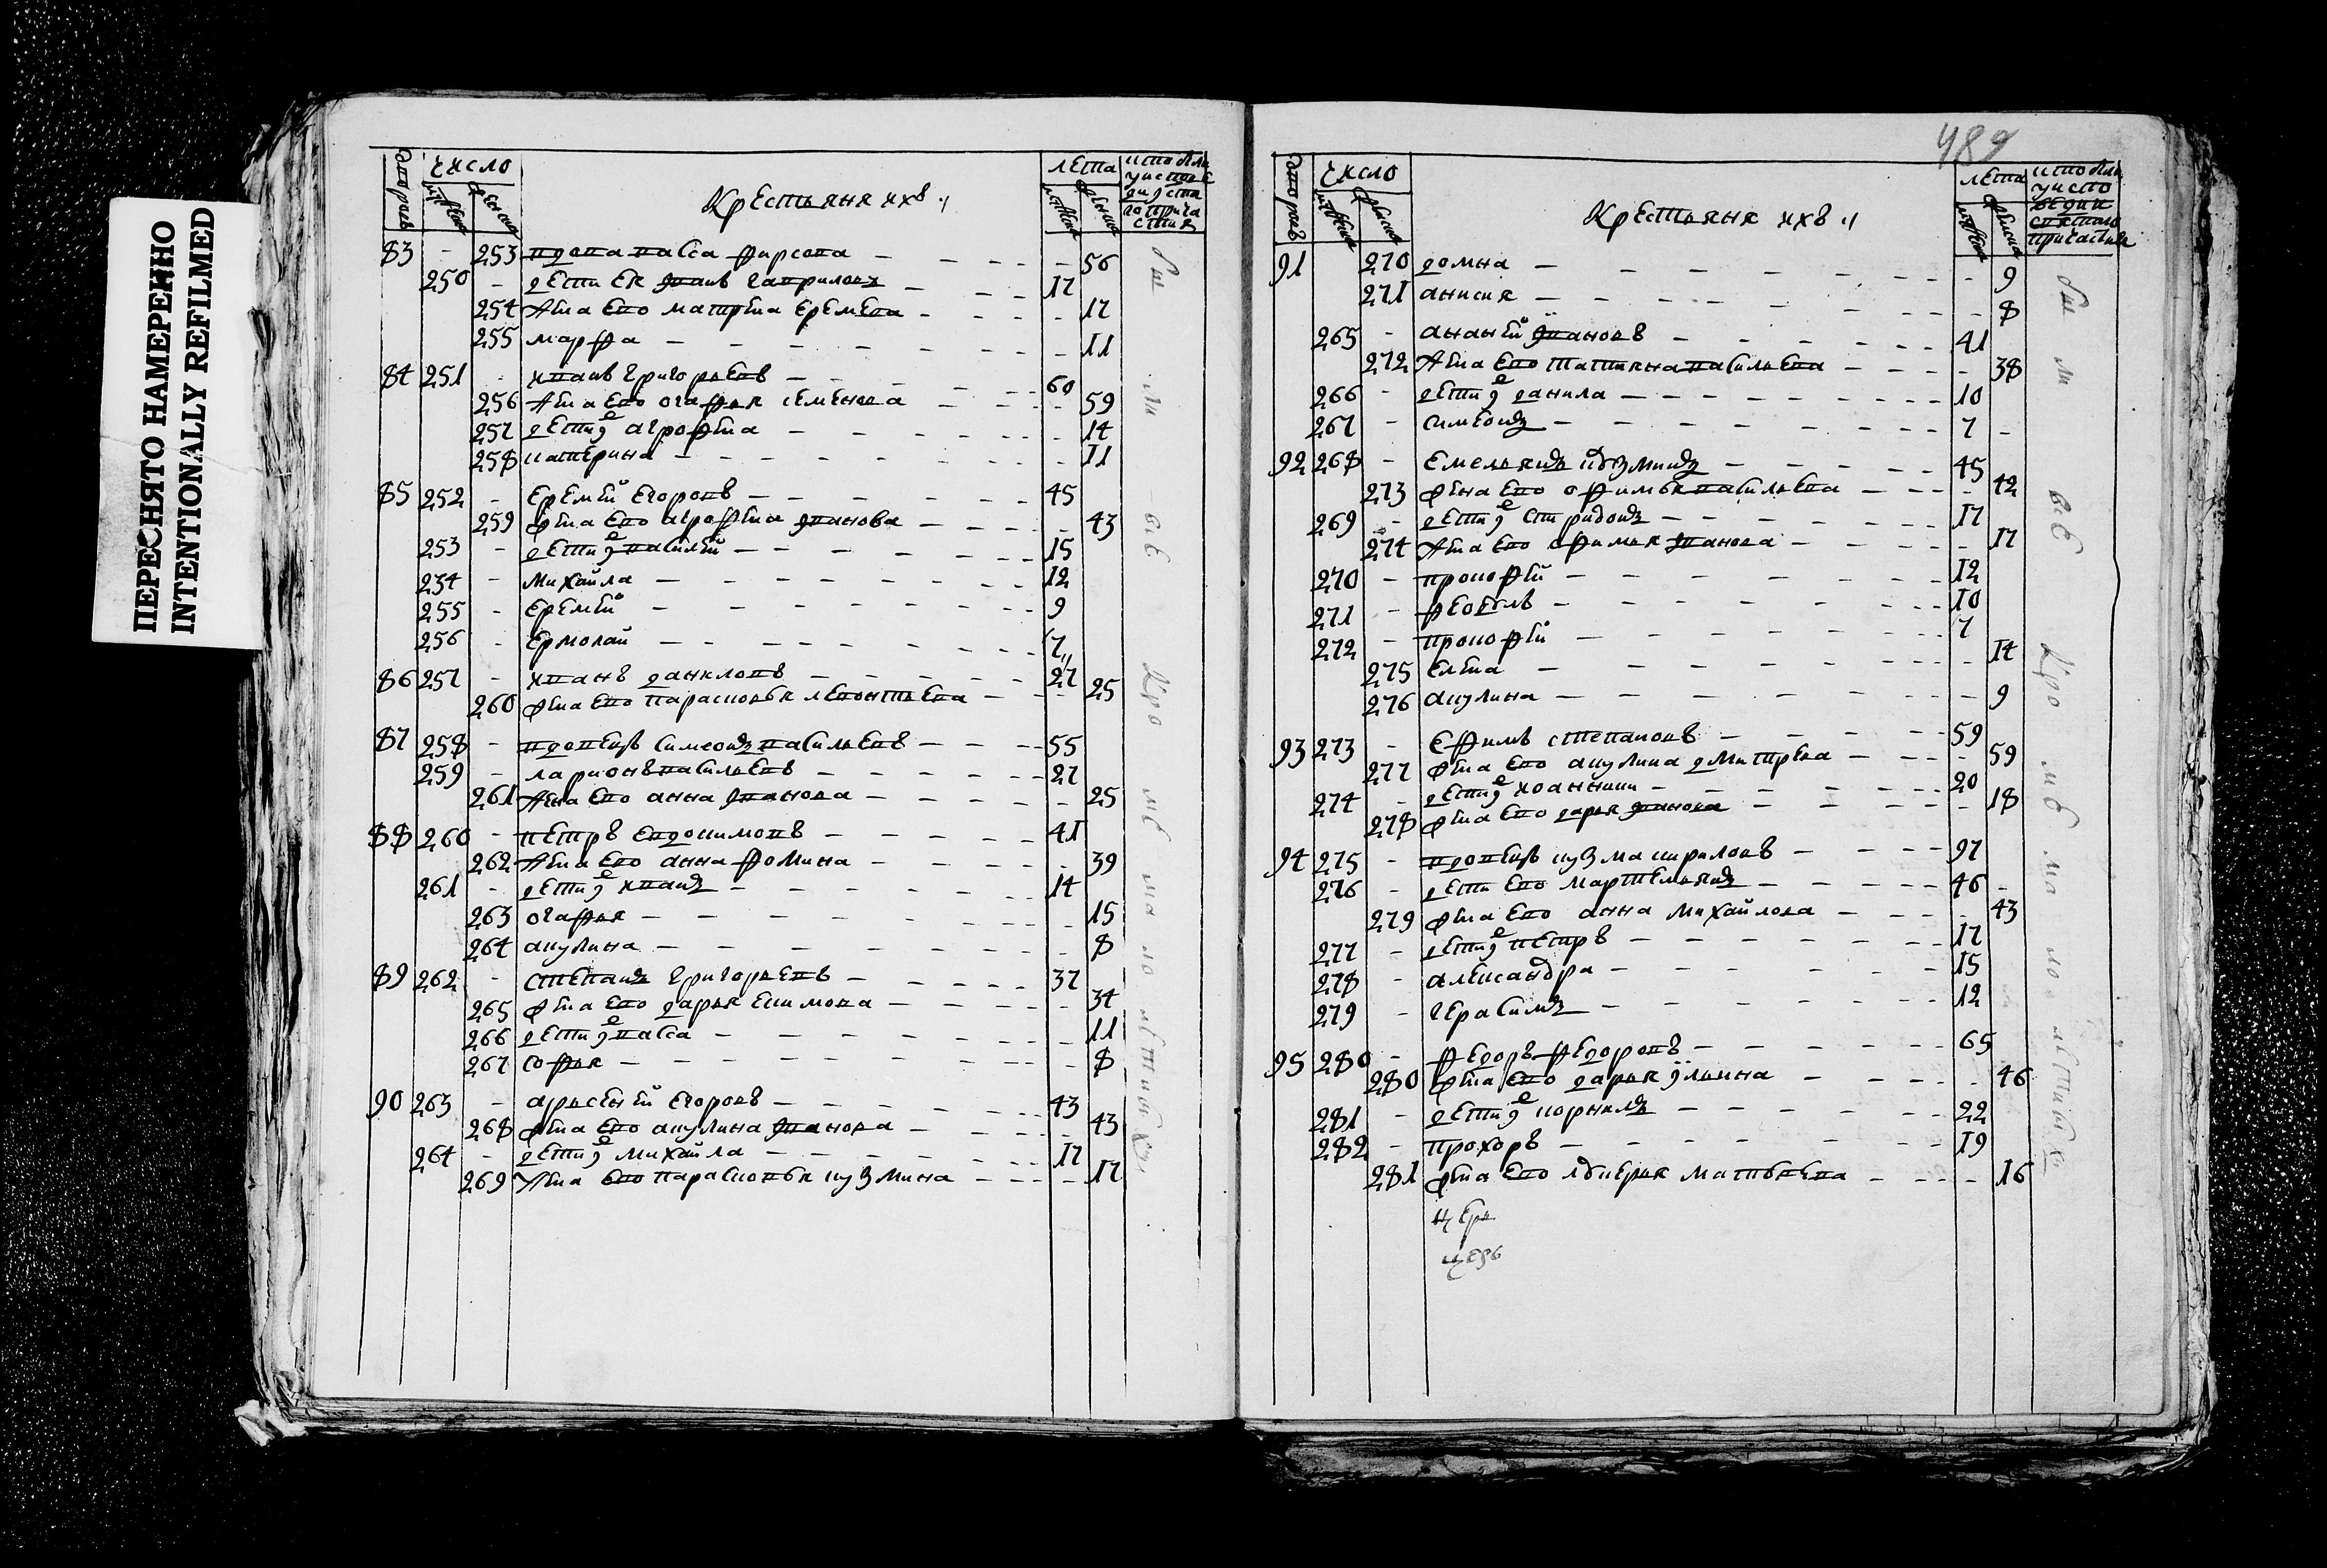 ПЕРЕСНЯТО НАМЕРЕННО
INTENTIONALLY REFILMED
число
лета
Крестьяня ихъ
83 - 253 вдова васса фирсова - 56
250 - дети ея иванъ гавриловъ 17
254 жена ево матрена еремева - 17
255 марфа - 11
84 251 - иванъ григорьевъ 60
256 жена ево огафья семенова - 59
257 дети агрофена - 14
258 катерина - 11
85 252 - еремей егоровъ 45
259 жена ево агрофена иванова - 43
253 - дети василей 15
234 - михайла 12
255 - еремей 9
256 - ермолай 7
86 257 - иванъ даниловъ 27
260 жена ево парасковья левонтьева - 25
87 258 - вдовецъ симеонъ васильевъ 55
259 - ларионъ васильевъ 27
261 жена ево анна иванова - 25
88 260 - петръ евдокимовъ 41
262 жена ево анна фомина - 39
261 - дети иванъ 14
263 огафья - 15
264 акулина - 8
89 262 - степанъ григорьевъ 37
265 жена ево дарья екимова - 34
266 дети васса - 11
267 софья - 8
90 263 - арьсеней егоровъ 43
268 жена ево акулина иванова - 43
264 - дети михайла 17
269 жена ево парасковья кузмина - 17
489
число
лета
Крестьяня ихъ
91 270 домна - 9
271 анисия - 8
265 - ананей ивановъ 41
272 жена ево татияна васильева - 38
266 - дети данила 10
267 - симеонъ 7 -
92 268 - емельянъ кузминъ 45
273 жена ево офимья васильева - 42
269 - дети спиридонъ 17
274 жена ево офимья иванова - 17
270 - прокофей 12
271 - 10
272 - прокофей 7
275 елена - 14
276 акулина - 9
93 273 - ефимъ степановъ 59
277 жена ево акулина дмитрева - 59
274 - дети иоанникии 20
278 жена ево дарья иванова - 18
94 275 - вдовецъ кузма кириловъ 97
276 - дети ево мартемьянъ 46 -
279 жена ево анна михайлова - 43
277 - дети петръ 17
278 - александра 15
279 - герасимъ 12
95 280 - федоръ федоровъ 65
280 жена ево дарья ильина - 46
281 - дети корнилъ 22
282 - прохоръ 19
281 жена ево лукерья матвеева - 16
церк